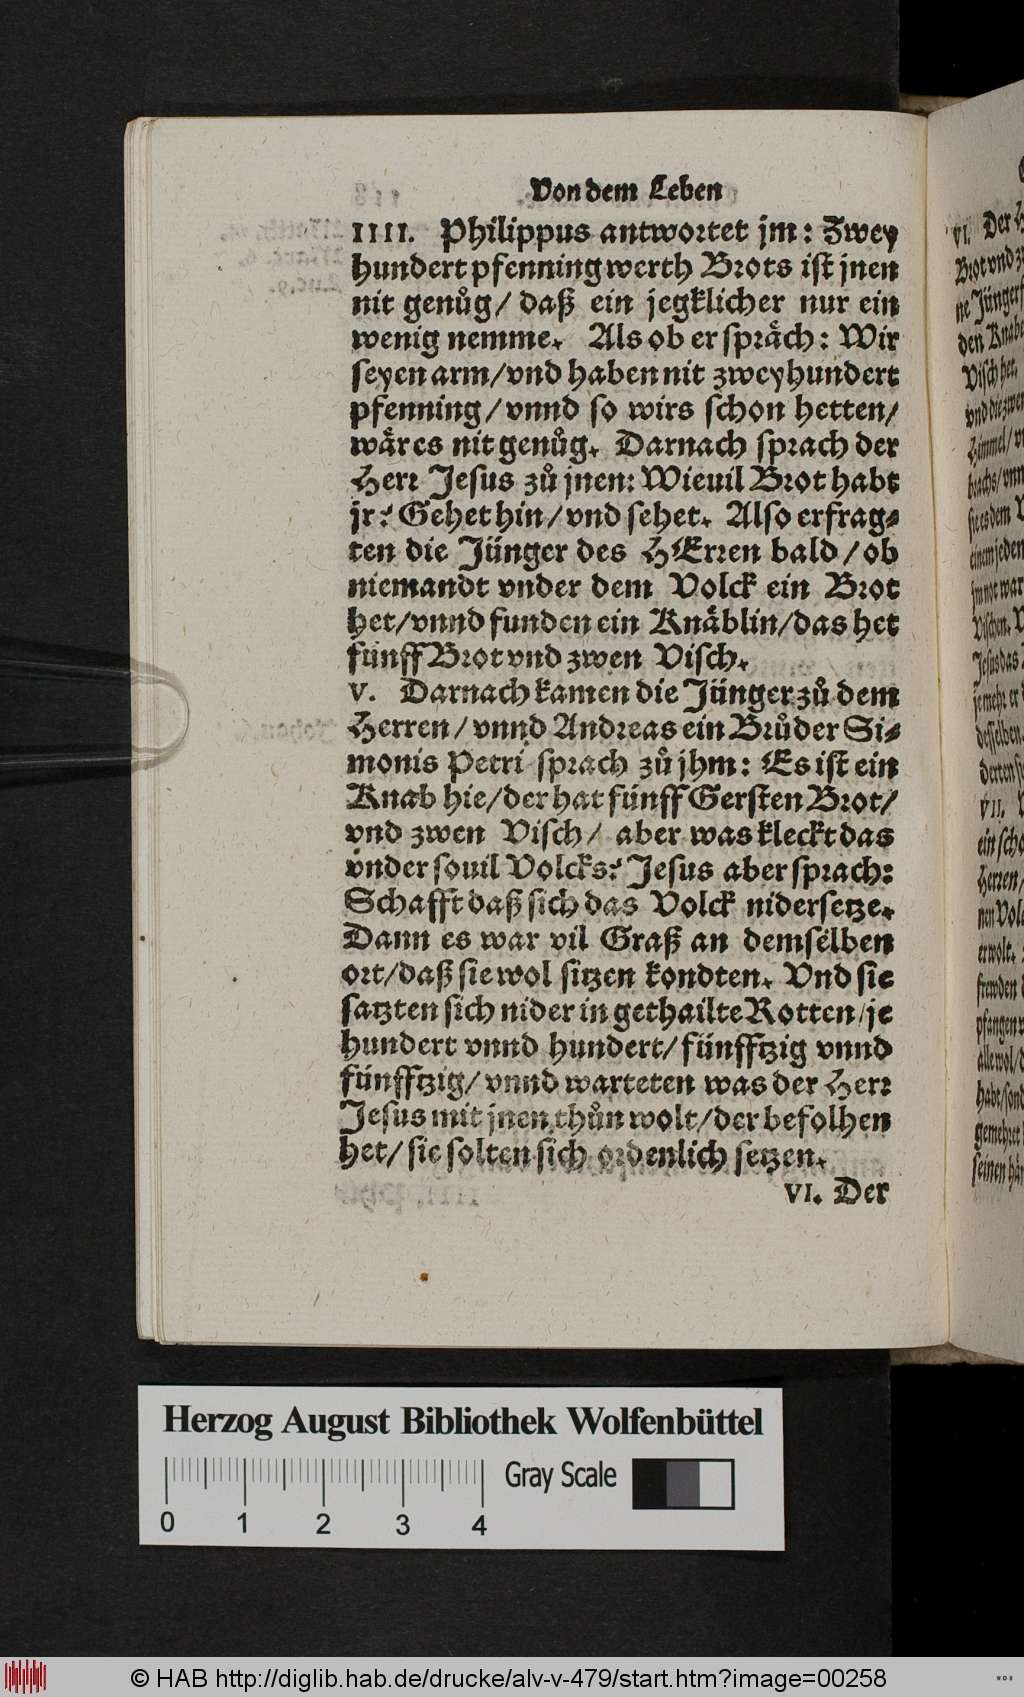 Von dem Leben
IIII. Philippus antwortet jm: Zwey
hundert pfenning werth Brots ist jnen
nit genůg/ daß ein jegklicher nur ein
wenig nemme. Als ob er spräch: Wir
seyen arm/vnd haben nit zweyhundert
pfenning/vnnd so wirs schon hetten/
wär es nit genůg. Darnach sprach der
Herr Jesus zů jnen: Wieuil Brot habt
jr? Gehet hin/vnd sehet. Also erfrag-
ten die Jünger des HErren bald/ob
niemandt vnder dem Volck ein Brot
het/vnnd funden ein Knäblin/das het
fünff Brot vnd zwen Visch.
V. Darnach kamen die Jünger zů dem
Herren/vnnd Andreas ein Brůder Si-
monis Petri sprach zů jhm: Es ist ein
Knab hie/der hat fünff Gersten Brot/
vnd zwen Visch/ aber was kleckt das
vnder souil Volcks? Jesus aber sprach:
Schafft daß sich das Volck nidersetze.
Dann es war vil Graß an demselben
ort/daß sie wol sitzen kondten. Vnd sie
satzten sich nider in gethailte Rotten/je
hundert vnnd hundert/fünfftzig vnnd
fünfftzig/vnnd warteten was der Herr
Jesus mit jnen thůn wolt/der befolhen
het/sie solten sich ordenlich setzen.
VI. Der
VI. Der
Brot vnd
ne Jünger
den Knabe
Visch het.
vnd die zwen
Himmel/
sie es dem
einem jeden
jm not war
Vischen.
Jesus das
je mehr er
desselben
VII.
ein
Herren/
nen Volck
er wolt.
frewden
alle wol/
habt/
gemehret
seinen
Herzog August Bibliothek Wolfenbüttel
Gray Scale
0 1 2 3 4
© HAB http://diglib.hab.de/drucke/alv-v-479/start.htm?image=00258